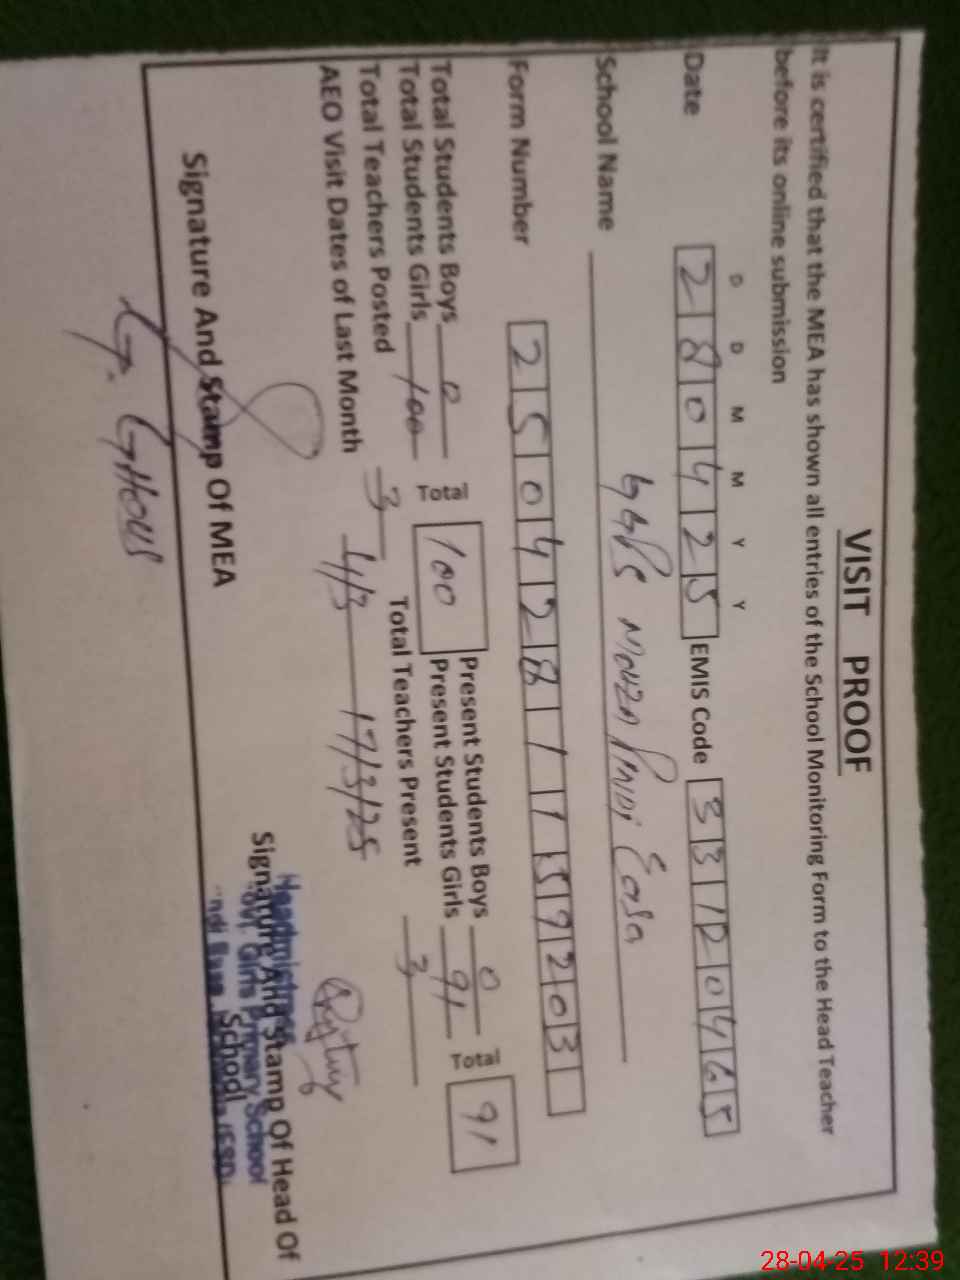 VISIT PROOF
It is certified that the MEA has shown all entries of the School Monitoring Form to the Head Teacher
before its online submission
D D M M Y Y
Date 280425 EMIS Code 33120465
School Name GGPS MOUZA PINDI Easa
Form Number 2504281159203
Total Students Boys 0 Present Students Boys 0
Total Students Girls 100 Total 100 Present Students Girls 91 Total 91
Total Teachers Posted 3 Total Teachers Present 3
AEO Visit Dates of Last Month 4/3 17/3/25
Signature And Stamp Of MEA
G. GHOUS
Signature And Stamp Of Head Of
School
Headmistress
Govt. Girls Primary School
28-04-25 12:39